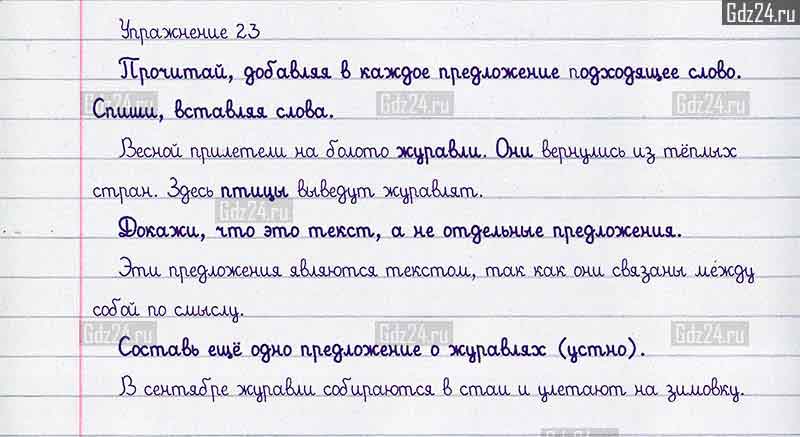 Gdz24.ru
Упражнение 23
Прочитай, добавляя в каждое предложение подходящее слово.
Gdz24.ru Gdz24.ru Gdz24.ru
Спиши, вставляя слова.
Весной прилетели на болото журавли. Они вернулись из тёплых
стран. Здесь птицы выведут журавлят.
Gdz24.ru
Докажи, что это текст, а не отдельные предложения.
Эти предложения являются текстом, так как они связаны между
собой по смыслу.
Gdz24.ru Gdz24.ru Gdz24.ru
Составь ещё одно предложение о журавлях (устно).
В сентябре журавли собираются в стаи и улетают на зимовку.